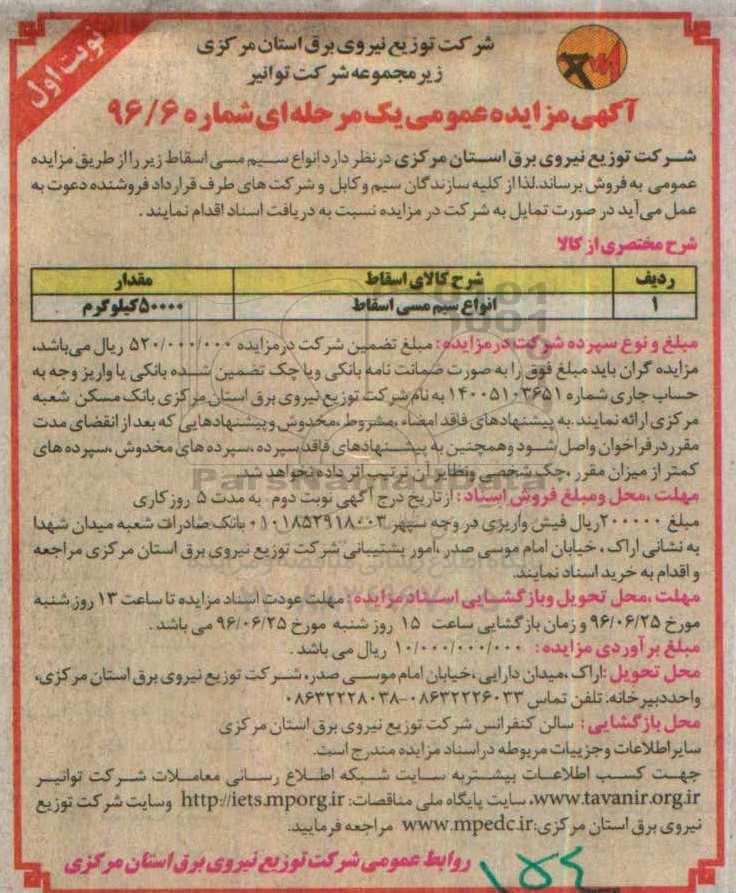 نوبت اول
شرکت توزیع نیروی برق استان مرکزی
زیرمجموعه شرکت توانیر
آگهی مزایده عمومی یک مرحله ای شماره ۹۶/۶
شرکت توزیع نیروی برق استان مرکزی در نظر دارد انواع سیم مسی اسقاط زیر را از طریق مزایده
عمومی به فروش برساند.لذا از کلیه سازندگان سیم وکابل و شرکت های طرف قرار داد فروشنده دعوت به
عمل می آید در صورت تمایل به شرکت در مزایده نسبت به دریافت اسناد اقدام نمایند .
شرح مختصری از کالا
ردیف شرح کالای اسقاط مقدار
۱ انواع سیم مسی اسقاط ۵۰۰۰۰کیلوگرم
مبلغ و نوع سپرده شرکت درمزایده: مبلغ تضمین شرکت درمزایده ۵۲۰/۰۰۰/۰۰۰ ریال می‌باشد،
مزایده گران باید مبلغ فوق را به صورت ضمانت نامه بانکی ویا چک تضمین شده بانکی یا واریز وجه به
حساب جاری شماره ۱۴۰۰۵۱۰۳۶۵۱ به نام شرکت توزیع نیروی برق استان مرکزی بانک مسکن شعبه
مرکزی ارائه نمایند .به پیشنهادهای فاقد امضاء ،مشروط ،مخدوش وپیشنهادهایی که بعد از انقضای مدت
مقرر درفراخوان واصل شود وهمچنین به پیشنهادهای فاقد سپرده ،سپرده های مخدوش ،سپرده های
کمتر از میزان مقرر ،چک شخصی ونظایر آن ترتیب اثر داده نخواهد شد.
ParsNamadData
مهلت ،محل ومبلغ فروش اسناد : از تاریخ درج آگهی نوبت دوم به مدت ۵ روز کاری
مبلغ ۲۰۰۰۰۰ریال فیش واریزی در وجه سپهر ۰۱۰۱۸۵۲۹۱۸۰۰۳ بانک صادرات شعبه میدان شهدا
به نشانی اراک ، خیابان امام موسی صدر ،امور پشتیبانی شرکت توزیع نیروی برق استان مرکزی مراجعه
و اقدام به خرید اسناد نمایند.
مهلت ،محل تحویل وبازگشایی اسناد مزایده : مهلت عودت اسناد مزایده تا ساعت ۱۳ روز شنبه
مورخ ۹۶/۰۶/۲۵ و زمان بازگشایی ساعت ۱۵ روز شنبه مورخ ۹۶/۰۶/۲۵ می باشد .
مبلغ برآوردی مزایده : ۱۰/۰۰۰/۰۰۰/۰۰۰ ریال می باشد .
محل تحویل :اراک ،میدان دارایی ،خیابان امام موسی صدر، شرکت توزیع نیروی برق استان مرکزی،
واحددبیرخانه. تلفن تماس ۰۸۶۳۲۲۲۶۰۳۳-۰۸۶۳۲۲۲۸۰۳۸
محل بازگشایی : سالن کنفرانس شرکت توزیع نیروی برق استان مرکزی
سایر اطلاعات وجزییات مربوطه دراسناد مزایده مندرج است.
جهت کسب اطلاعات بیشتربه سایت شبکه اطلاع رسانی معاملات شرکت توانیر
www.tavanir.org.ir، سایت پایگاه ملی مناقصات: http://iets.mporg.ir وسایت شرکت توزیع
نیروی برق استان مرکزی:www.mpedc.ir مراجعه فرمایید.
روابط عمومی شرکت توزیع نیروی برق استان مرکزی